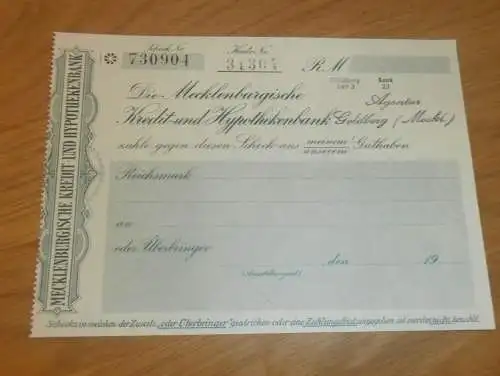 MECKLENBURGISCHE KREDIT UND HYPOTHEKENBANK
Scheck No. Konto No.
730904 34304 R.M
Die Mecklenburgische Agentur
Kredit und Hypothekenbank Goldberg (Meckl.)
zahle gegen diesen Scheck aus meinem/unserem Guthaben
Reichsmark
an
oder Überbringer
den 19
(Ausstellungsort)
Schecks in welchen der Zusatz „oder Überbringer" gestrichen oder eine Zahlungsfrist angegeben ist werden nicht bezahlt.